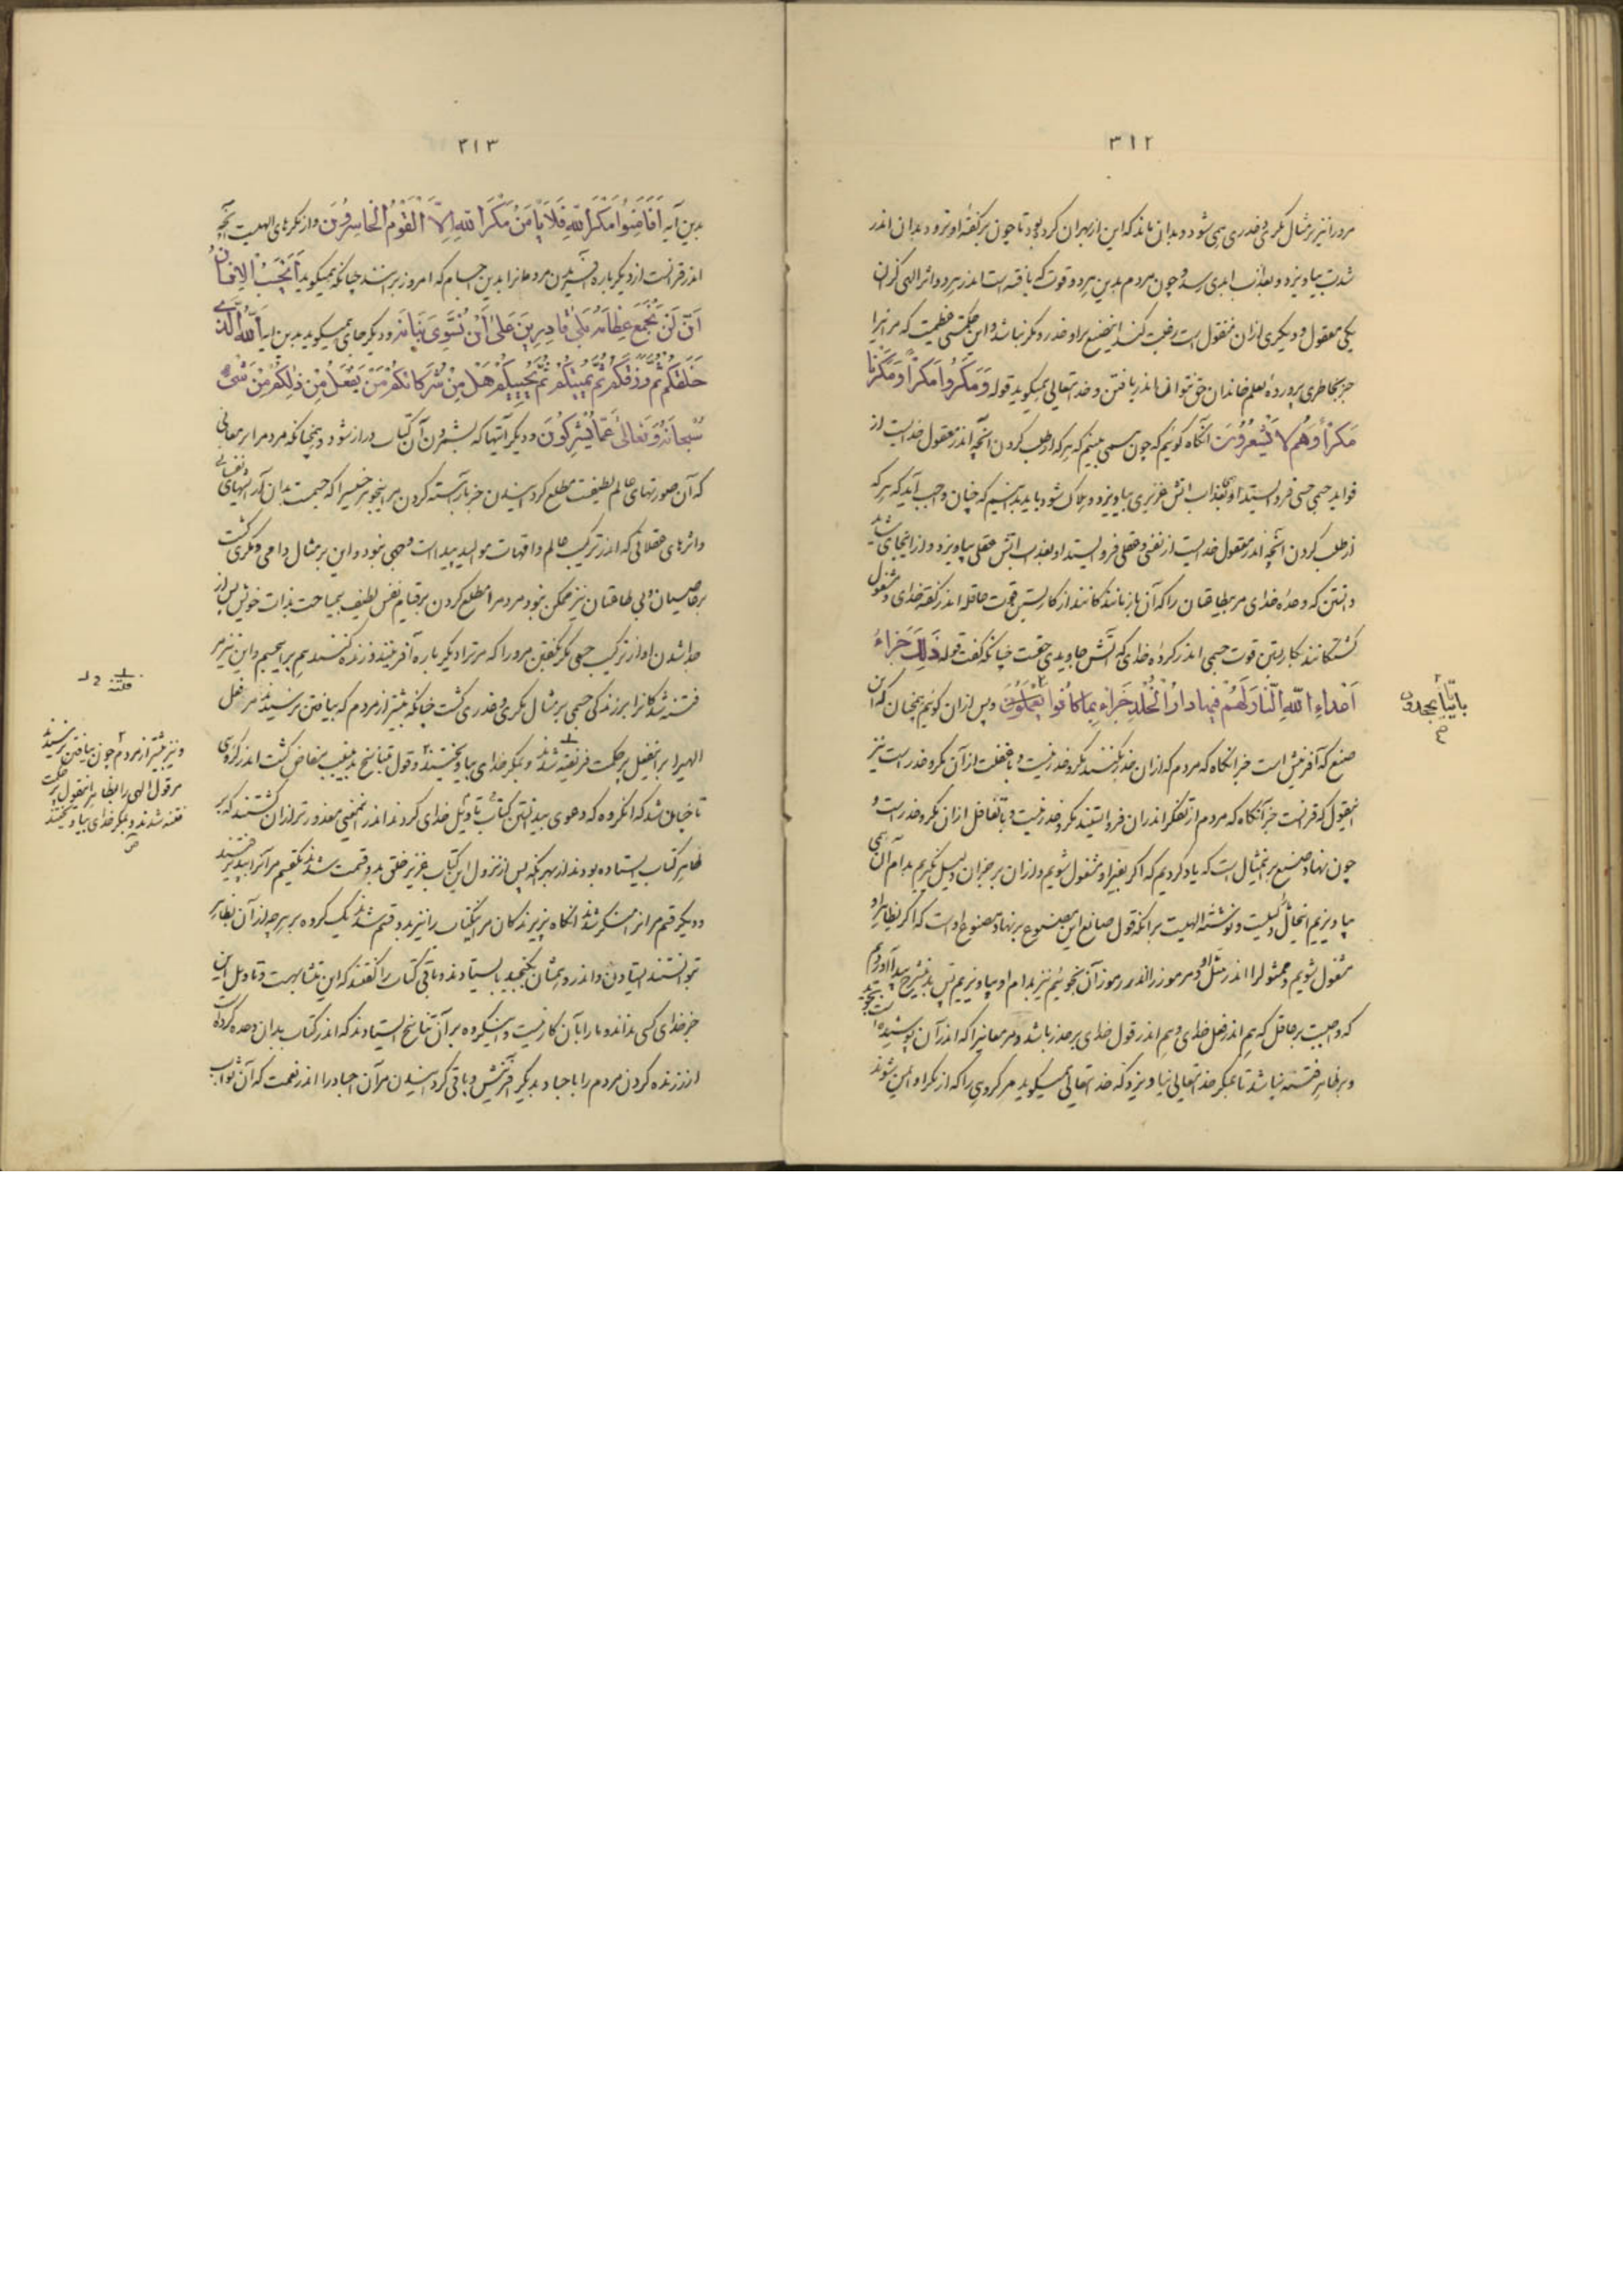 ۳۱۲
مرورا نیز بر مثال مکری و غدری همی شود و بدان ماند که این از بهر آن کرد بود تا چون بر گفته او برود بدان اندر
شدت بیاویزد و بعذاب ابدی رسد و چون مردم بدین هر دو قوت که یافته است اندر هر دو اثر الهی کزان
یکی معقول و دیگری ازان منقول است رغبت کند این صنع براو غدر و مکر نباشد و این حکمتی عظیمست که مر انرا
جز بخاطری پرورده بعلم خاندان حق نتوان اندر یافتن و خدایتعالی همیگوید قوله وَمَكَرُوا مَكْراً وَمَكَرْنَا
مَكْراً وَهُمْ لا يَشْعُرُونَ آنگاه گوئیم که چون همی بینیم که هر که از طلب کردن آنچه اندر معقول خدایست از
فواید جسمی حسی فرو ایستد او بعذاب آتش غریزی بیاویزد و هلاک شود باید بدانیم که چنان واجب آید که هر که
از طلب کردن آنچه اندر معقول خدایست از نفسی و عقلی فرو ایستد او بعذاب آتش عقلی بیاویزد و از اینجای شاید
دانستن که وعده خدای مر بیطاعتان را که آن باز مانندگانند از کار بستن قوت عاقله اندر گفته خدای و مشغول
گشتگانند بکار بستن قوت حسی اندر کرده خدای که آتش جاویدی حقست چنانکه گفت قوله ذَلِكَ جَزَاءُ
أَعْدَاءِ اللَّهِ النَّارُ لَهُمْ فِيهَا دَارُ الْخُلْدِ جَزَاءً بِمَا كَانُوا يَعْمَلُونَ و پس ازان گوئیم همچنان که آن
بِآيَاتِنَا يَجْحَدُونَ
صنع که آفرینش است جز انگاه که مردم که ازان حذر نکنند مکر و غدر نیست و با غفلت از آن مکر و غدر است نیز
این قول که قرانست جز آنگاه که مردم از تفکر اندران فرو ایستند مکر و غدر نیست و با تغافل ازان مکر و غدر است و
چون نهاد صنع بر این مثال است که یاد کردیم که اگر بغیر او مشغول شویم و ازان بر جز ان دلیل نگیریم بدام آن همی
بیاویزیم اینحال دلیلست و نوشته الهیست بر انکه قول صانع این مصنوع بر نهاد مصنوع او است که اگر بظاهر او
مشغول شویم و ممثول را اندر مثل او و مر مرموز را اندر رموز آن نجوئیم نیز بدام او بیاویزیم پس بدین شرح پیدا آوردیم
که واجبست بر عاقل که هم اندر فعل خدای و هم اندر قول خدای بر حذر باشد و مر معانیرا که اندر آن پوشیده است بجوید
و بر ظاهر فتنه نباشد تا بمکر خدایتعالی نیاویزد که خدایتعالی همیگوید مر گروهی را که از مکر او ایمن شوند
۳۱۳
بدین آیه أَفَأَمِنُوا مَكْرَ اللَّهِ فَلَا يَأْمَنُ مَكْرَ اللَّهِ إِلَّا الْقَوْمُ الْخَاسِرُونَ و از مکرهای الهیست آنچه
اندر قرانست از دیگر باره آفریدن مردمانرا بدین اجسام که امروز برانند چنانکه همیگوید أَيَحْسَبُ الْإِنْسَانُ
أَنْ لَنْ نَجْمَعَ عِظَامَهُ بَلَىٰ قَادِرِينَ عَلَىٰ أَنْ نُسَوِّيَ بَنَانَهُ و دیگر جای همیگوید بدین ایه اللَّهُ الَّذِي
خَلَقَكُمْ ثُمَّ رَزَقَكُمْ ثُمَّ يُمِيتُكُمْ ثُمَّ يُحْيِيكُمْ هَلْ مِنْ شُرَكَائِكُمْ مَنْ يَفْعَلُ مِنْ ذَٰلِكُمْ مِنْ شَيْءٍ
سُبْحَانَهُ وَتَعَالَىٰ عَمَّا يُشْرِكُونَ و دیگر آیتها که بشمردن آن کتاب دراز شود و همچنانکه مردم را بر معانی
که آن صورتهای عالم لطیفست مطلع گردانیدن جز باراسته کردن مر این جوهر خسیس را که جسمست بدان آرایشهای نفسانی
و اثرهای عقلانی که اندر ترکیب عالم و امهات موالید پیداست وجهی نبود و این بر مثال دامی و مکری گشت
بر عاصیان و بی طاعتان نیز ممکن نبود مردم را مطلع کردن بر قیام نفس لطیف بمباحث بذات خویش پس از
جدا شدن او از ترکیب جسمی مگر بگفتن مرورا که مر ترا دیگر باره آفرینند و زنده کنند هم بر این جسم و این نیز مر
فتنه شدگانرا بر زندگی جسمی بر مثال مکری و غدری گشت چنانکه بیشتر از مردم که بیافتن نرسیدند مر فعل
فتنه
الهیرا بر اینفعل پر حکمت فریفته شدند و بمکر خدای بیاویختند و قول تناسخ بدین سبب فاش گشت اندر گروهی
و نیز بیشتر از مردم چون بیافتن نرسیدند
مر قول الهی را بظاهر اینقول پر حکمت
فتنه شدند و بمکر خدای بیاویختند
تا چنان شد که انگروه که دعوی بیدانستن کتاب و تأویل خدای کردند اندر اینمعنی معذورتر ازان گشتند که بر
ظاهر کتاب بیستاده بودند از بهر آنکه پس از نزول این کتاب عزیز خلق بدو قسمت شدند یکقسم مر آنرا بپذیرفتند
و دیگر قسم مر انرا منکر شدند انگاه پذیرندگان مر این کتاب را نیز بدو قسم شدند یک گروه بر هر چه از آن بظاهر
توانستند ایستادن و اندر وهمشان بگنجید بایستادند و باقی کتاب را گفتند که این متشابهست و تأویل این
جز خدای کسی نداند و مارا با آن کار نیست و اینگروه بر آن تناسخ ایستادند که اندر کتاب بدان وعده کرده است
از زنده کردن مردم را با جساد بدیگر آفرینش و باقی گردانیدن مر آن اجساد را اندر نعمت که آن ثواب